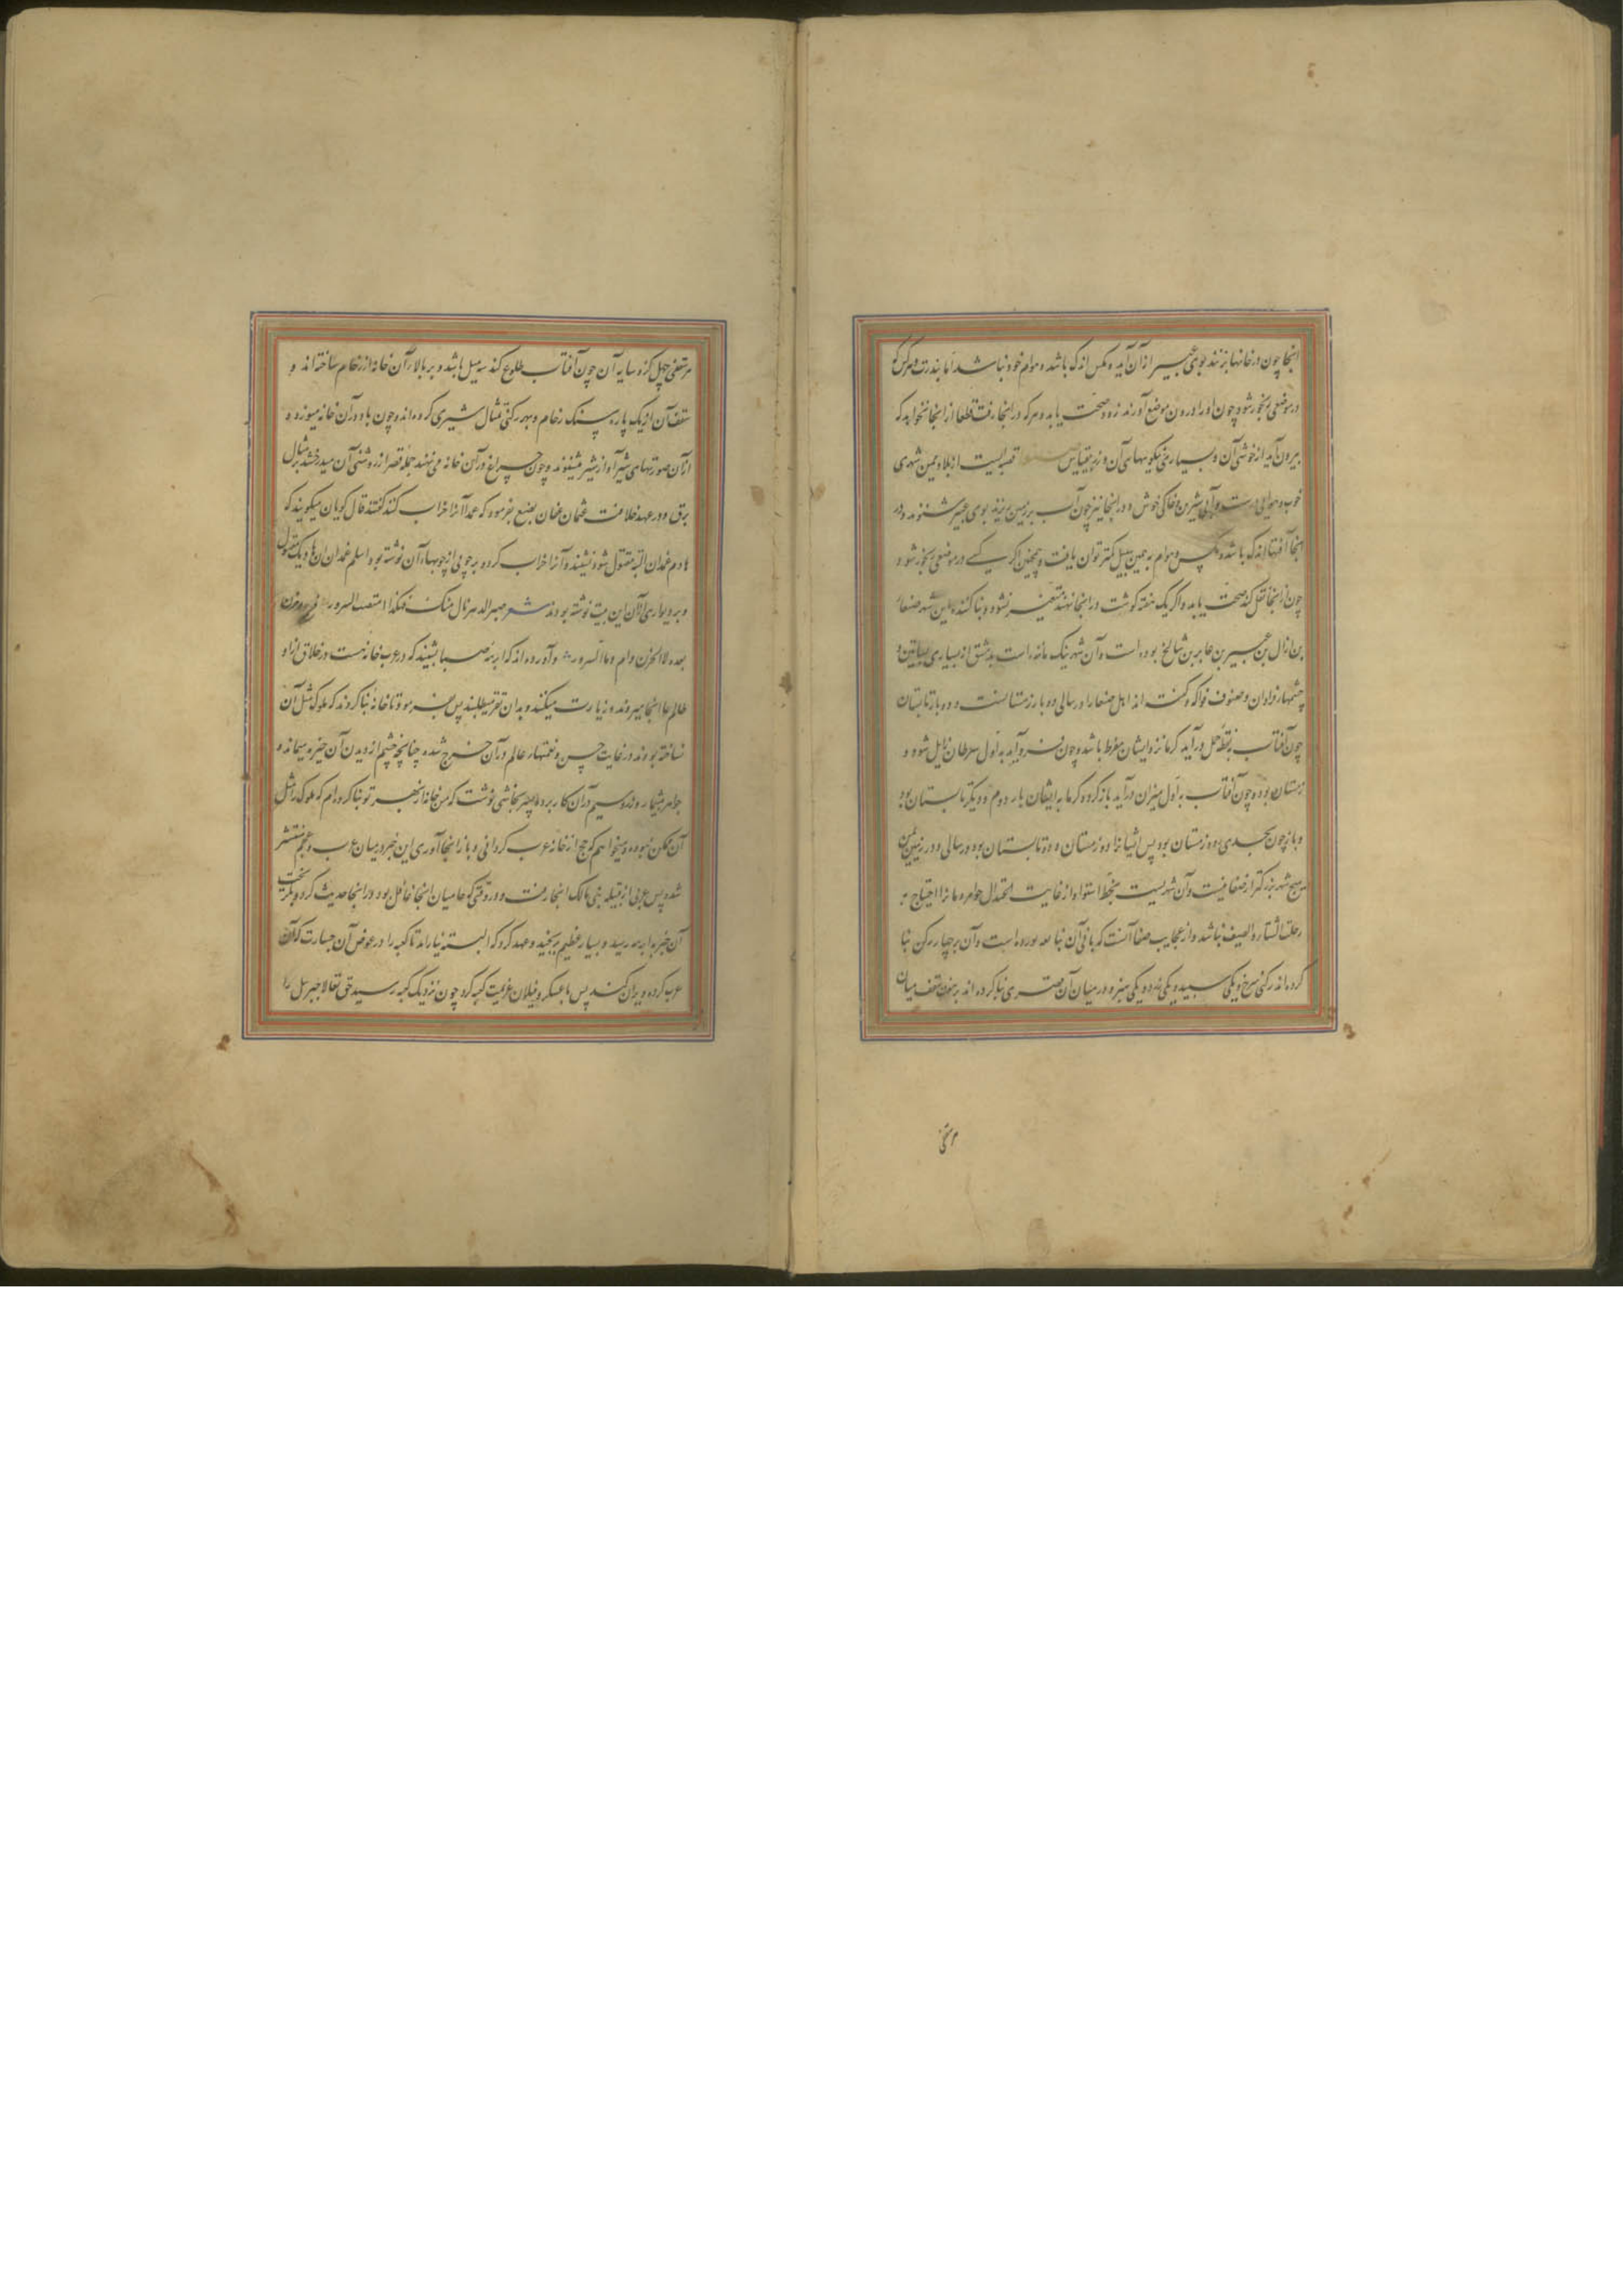 اینجا چون در خانها بزنند بوی عبیر از آن آید و مکس اندک باشد و هوام خود نباشد اما بندرت و هرکس که
در موضعی رنجور شود چون او را درون موضع آورند زود صحت یابد و هرکه در اینجا رفت قطعا از اینجا نخواهد که
بیرون آید از خوشی آن و بسیاری نیکویهای آن و زبر مقیاس قصبه ایست از بلاد یمن شهری
خوب و هوایی درست و آبی شیرین و خاکی خوش و در اینجا نیز چون آب بر زمین ریزند بوی عبیر شنوند و در
اینجا آفتها اندک باشد و مکس و هوام به همین سبیل کمتر توان یافت و همچنین اگر کسی در موضعی رنجور شود
چون از اینجا نقل کند صحت یابد و اگر یک هفته گوشت در اینجا نهند متغیر نشود و بنا کننده این شهر صنعا
بن ازال بن عبیر بن عابر بن شالخ بوده است و آن شهر نیک مانده است بدمشق از بسیاری بساتین و
چشمها فراوان و صنوف فواکه و گفته اند اهل صنعا را در سالی دو بار زمستانست و دو بار تابستان
چون آفتاب بنقطه حمل درآید کرما نزد ایشان مفرط باشد و چون فرو آید به اول سرطان زایل شود و
زمستان بود و چون آفتاب به اول میزان درآید باز گردد کرما به ایشان بار دوم و دیگر تابستان بود
و باز چون بجدی بود زمستان بود پس ایشانرا دو زمستان و دو تابستان بود در سالی و در زمین یمن
هیچ شهر بزرگتر از صنعا نیست و آن شهریست بخط استوا و از غایت اعتدال هوا مردمانرا احتیاج به
رحلة الشتاء و الصیف نباشد و از عجایب صنعا آنست که بانی آن بنا بوده است و آن بر چهار رکن بنا
کرده اند رکنی سرخ و یکی سپید و یکی زرد و یکی سبز و در میان آن قصری بنا کرده اند بر هفت سقف میان
هر سقفی
مرتقفی چهل گز و سایه آن چون آفتاب طلوع کند سه میل باشد و بر بالا آن خانه از رخام ساخته اند و
سقف آن از یک پاره سنک رخام و بهر رکنی مثال شیری کرده اند و چون باد در آن خانه میوزد
از آن صورتهای شیر آواز شیر میشنوند و چون چراغ در آن خانه می نهند جمله قصر از روشنی آن میدرخشد بر مثال
برق و در عهد خلافت عثمان عفان بضنع بفرمود که عمدا آنرا خراب کنند گفتند فال گویان میگویند که
هادم غمدان البته مقتول شود نشنید و آنرا خراب کرد و بر چوبی از چوبها آن نوشته بود اسلم غمدان ان هادمک مقتول
و بر دیواری از آن این بیت نوشته بودند شعر صبر الدهر نال منک فهکذا امتضت الدهور فرح و حزن
بعده لا الحزن دام و لا السرور و آورده اند که ابرهه صباح بشنید که در عرب خانه هست و خلایق از او
طالم عا آنجا میروند و زیارت میکنند و بدان تقرب میطلبند پس بفرمود تا خانه بنا کردند که ملوک مثل آن
نساخته بودند در غایت حسن و نعمتها عالم در آن خرج شده چنانچه چشم از دیدن آن خیره میماند و
جواهر بیشمار و زر و سیم در آن کار برده بقیصر نجاشی نوشت که من خانه از بهر تو بنا کرده ام که ملوک را مثل
آن ممکن نبوده و میخواهم که حج از خانه عرب گردانی و باز اینجا آوری این خبر در میان عرب و عجم منتشر
شد و پس عربی از قبیله بنی مالک اینجا رفت و در وقتی که حامیان اینجا غافل بود در اینجا حدیث کرد و بگریخت
آن خبر به ابرهه رسید و بسیار عظیم برنجید و عهد کرد که البته نیارامد تا کعبه را در عوض آن جسارت که آن
عرب کرده ویران کند پس با عسکر و فیلان عزیمت کعبه کرد چون نزدیک کعبه رسید حق تعالا جبرئیل را